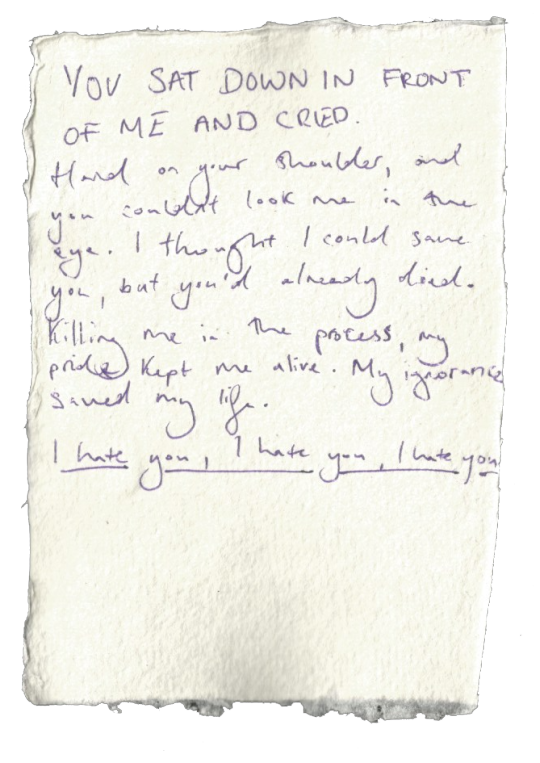 YOU SAT DOWN IN FRONT
OF ME AND CRIED.
Hand on your shoulder, and
you couldnt look me in the
eye. I thought I could save
you, but you'd already died.
Killing me in the process, my
pride kept me alive. My ignorance
saved my life.
I hate you, I hate you, I hate you